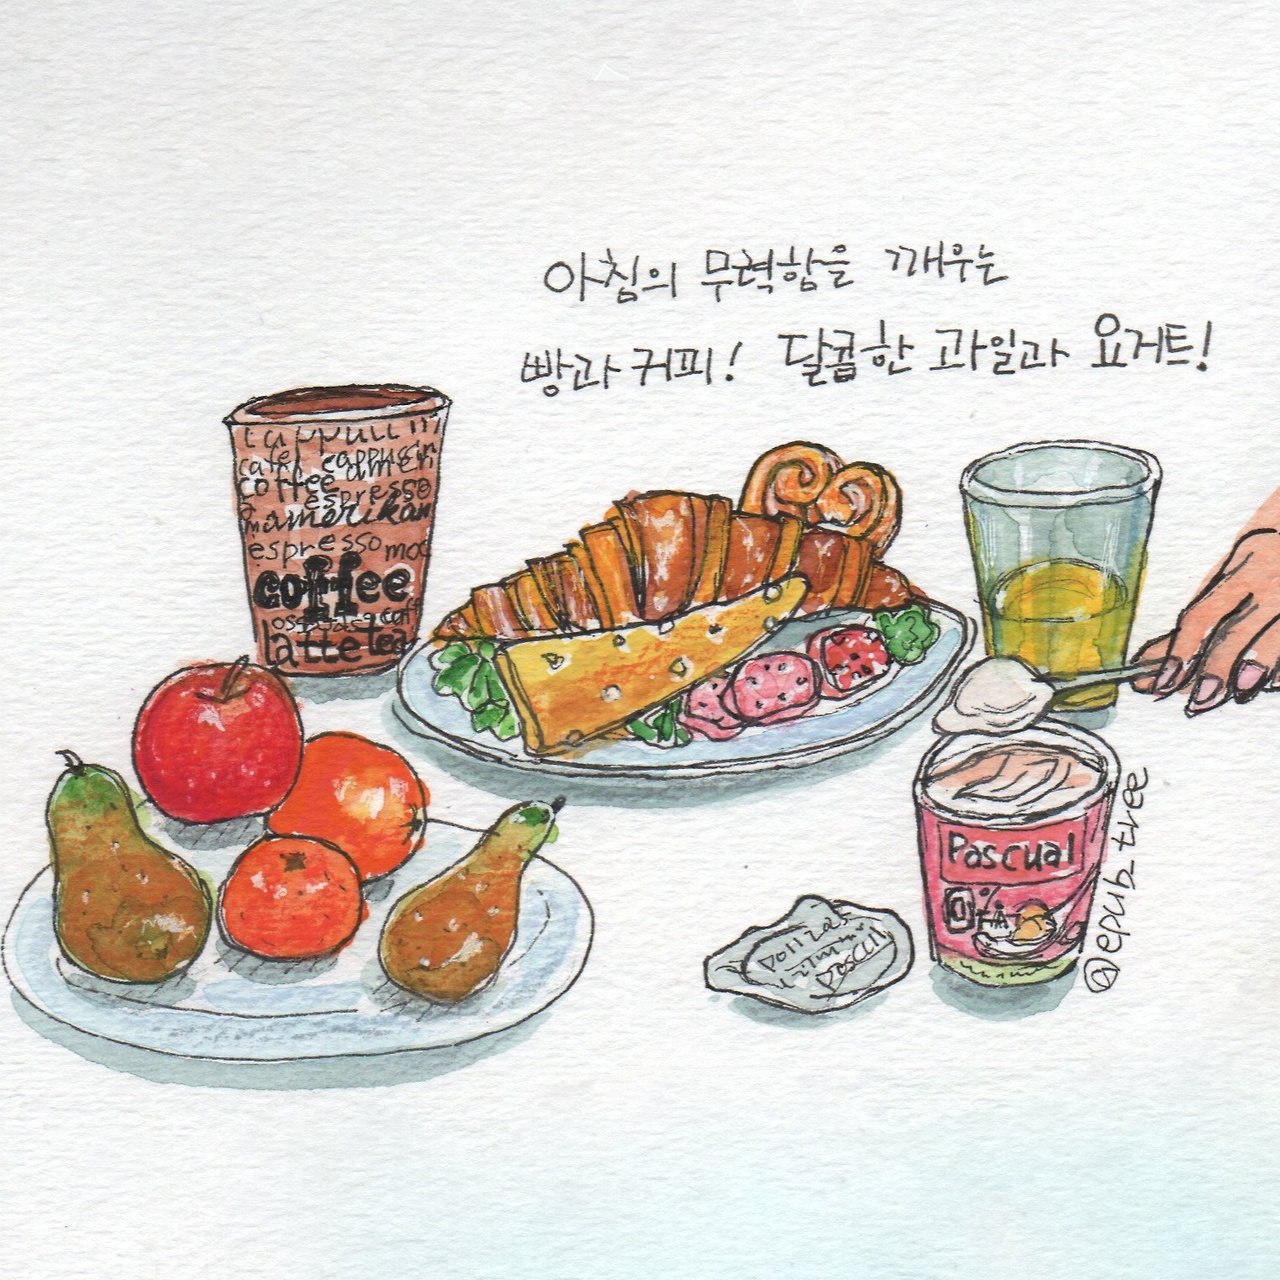 아침의 무력함을 깨우는
빵과 커피! 달콤한 과일과 요거트!
cappuccin
cafe cappuccin
coffee
espresso
amerikan
espresso moc
coffee
latte tea
Pascual
0%
pascual
@epub_tree